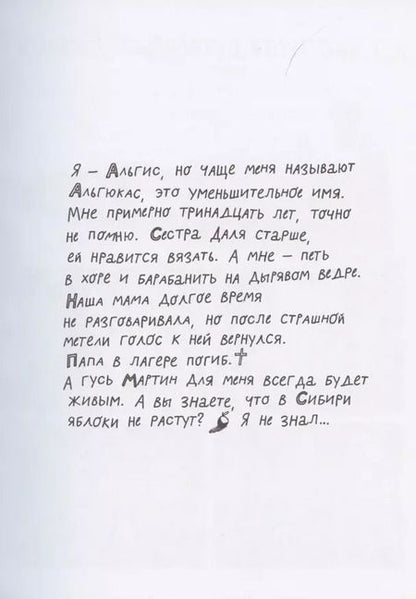 Я – Альгис, но чаще меня называют
Альгюкас, это уменьшительное имя.
Мне примерно тринадцать лет, точно
не помню. Сестра Даля старше,
ей нравится вязать. А мне – петь
в хоре и барабанить на дырявом ведре.
Наша мама долгое время
не разговаривала, но после страшной
метели голос к ней вернулся.
Папа в лагере погиб.
А гусь Мартин для меня всегда будет
живым. А вы знаете, что в Сибири
яблоки не растут? Я не знал...